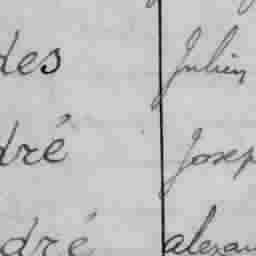 des Julien
dré Josep
dré alexan